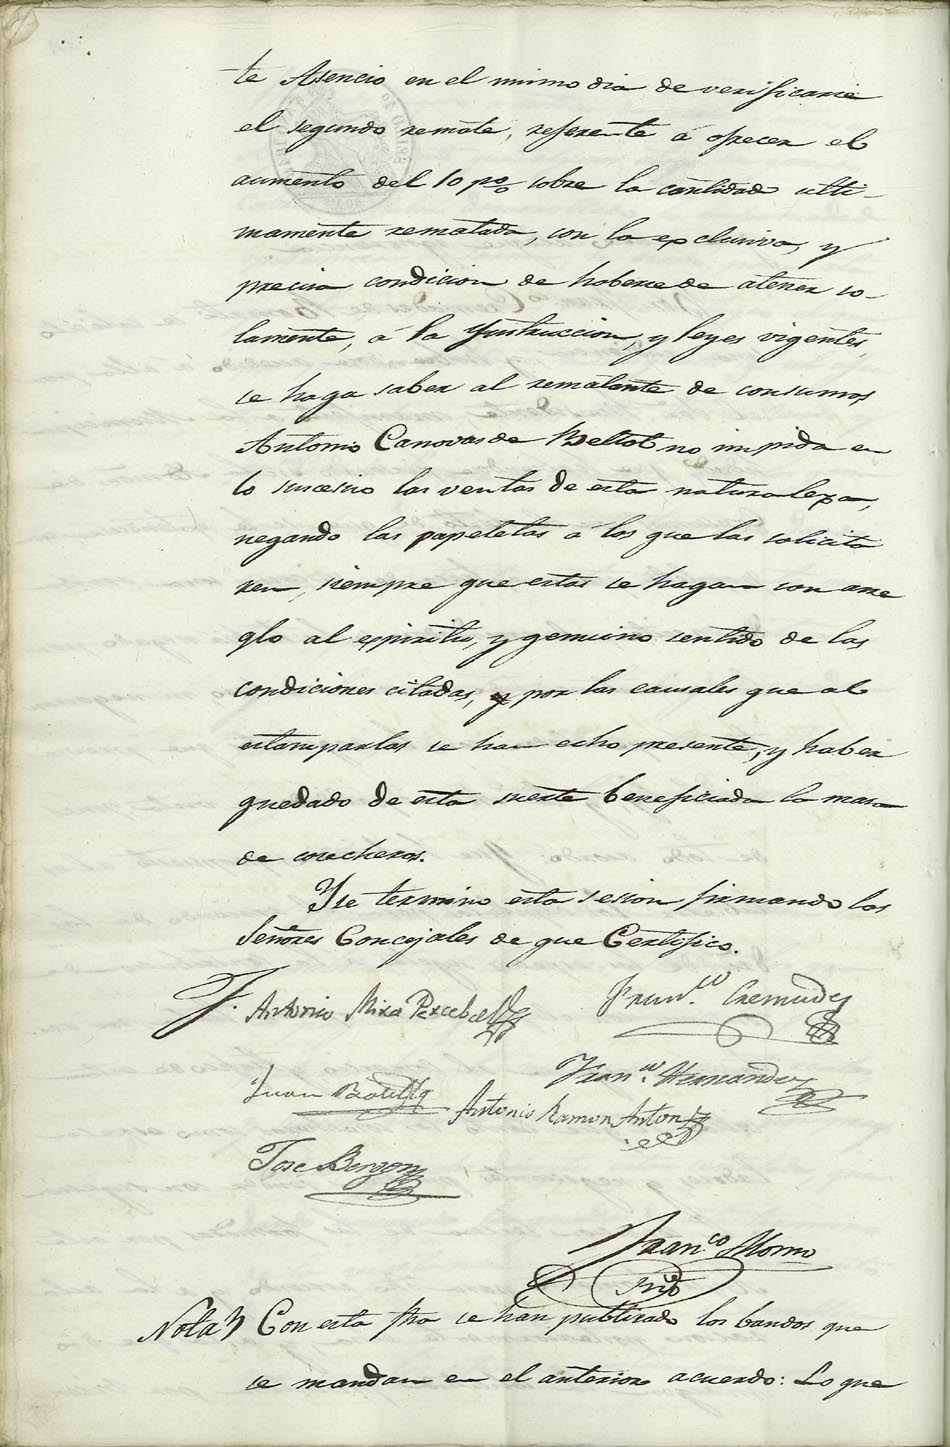 te Asencio en el mimo dia de verificarce
el segundo remate, referente á ofrecer el
aumento del 10 p% sobre la cantidad ulti-
mamente rematada, con la exclusiva, y
precisa condicion de haberce de atener so-
lamente, á la Ynstruccion, y leyes vigentes,
se haga saber al rematante de consumos,
Antonio Canovas de Beltot no impida en
lo sucesivo las ventas de esta naturaleza,
negando las papeletas á los que las solicita
ren, siempre que estas se hagan con arre
glo al espiritu, y genuino sentido de las
condiciones citadas, y por las causales que al
estamparlas se han echo presente, y haber
quedado de esta suerte beneficiada la masa
de cosecheros.
Y se termino esta sesion firmando los
Señores Concejales de que Certifico.
F. Antonio Mira Percebal
Fran.co Cremades
Juan Botella
Fran.co Hernandez
Antonio Ramon Anton
Jose Bergon
Fran.co Alorno
Srio
Nota) Con esta fha se han publicado los bandos que
se mandan en el anterior acuerdo: Lo que